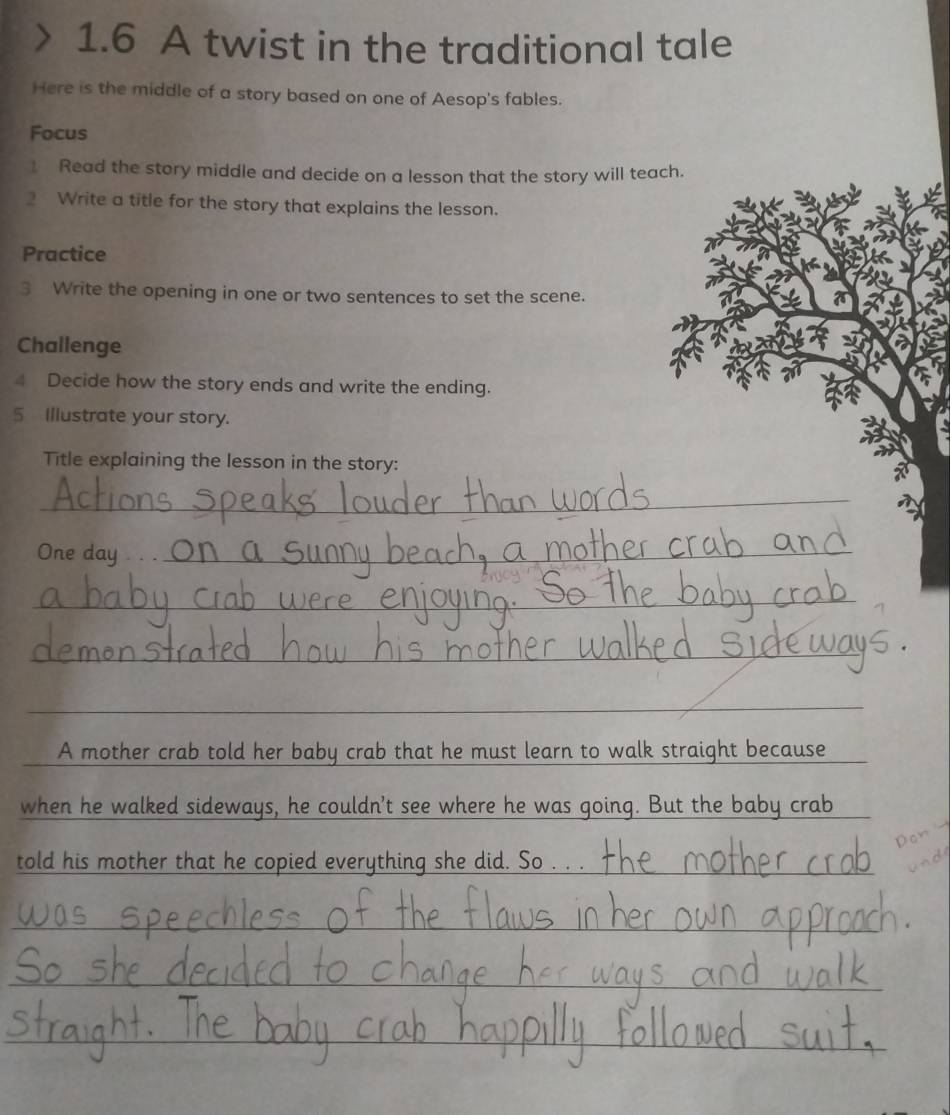 > 1.6 A twist in the traditional tale
Here is the middle of a story based on one of Aesop's fables.
Focus
1 Read the story middle and decide on a lesson that the story will teach.
2 Write a title for the story that explains the lesson.
Practice
3 Write the opening in one or two sentences to set the scene.
Challenge
4 Decide how the story ends and write the ending.
5 Illustrate your story.
Title explaining the lesson in the story:
Actions speaks louder than words
One day . . . on a sunny beach, a mother crab and
enjoying what?
a baby crab were enjoying. So the baby crab
demonstrated how his mother walked sideways.
A mother crab told her baby crab that he must learn to walk straight because
when he walked sideways, he couldn't see where he was going. But the baby crab
told his mother that he copied everything she did. So . . . the mother crab
was speechless of the flaws in her own approach.
So she decided to change her ways and walk
straight. The baby crab happilly followed suit.